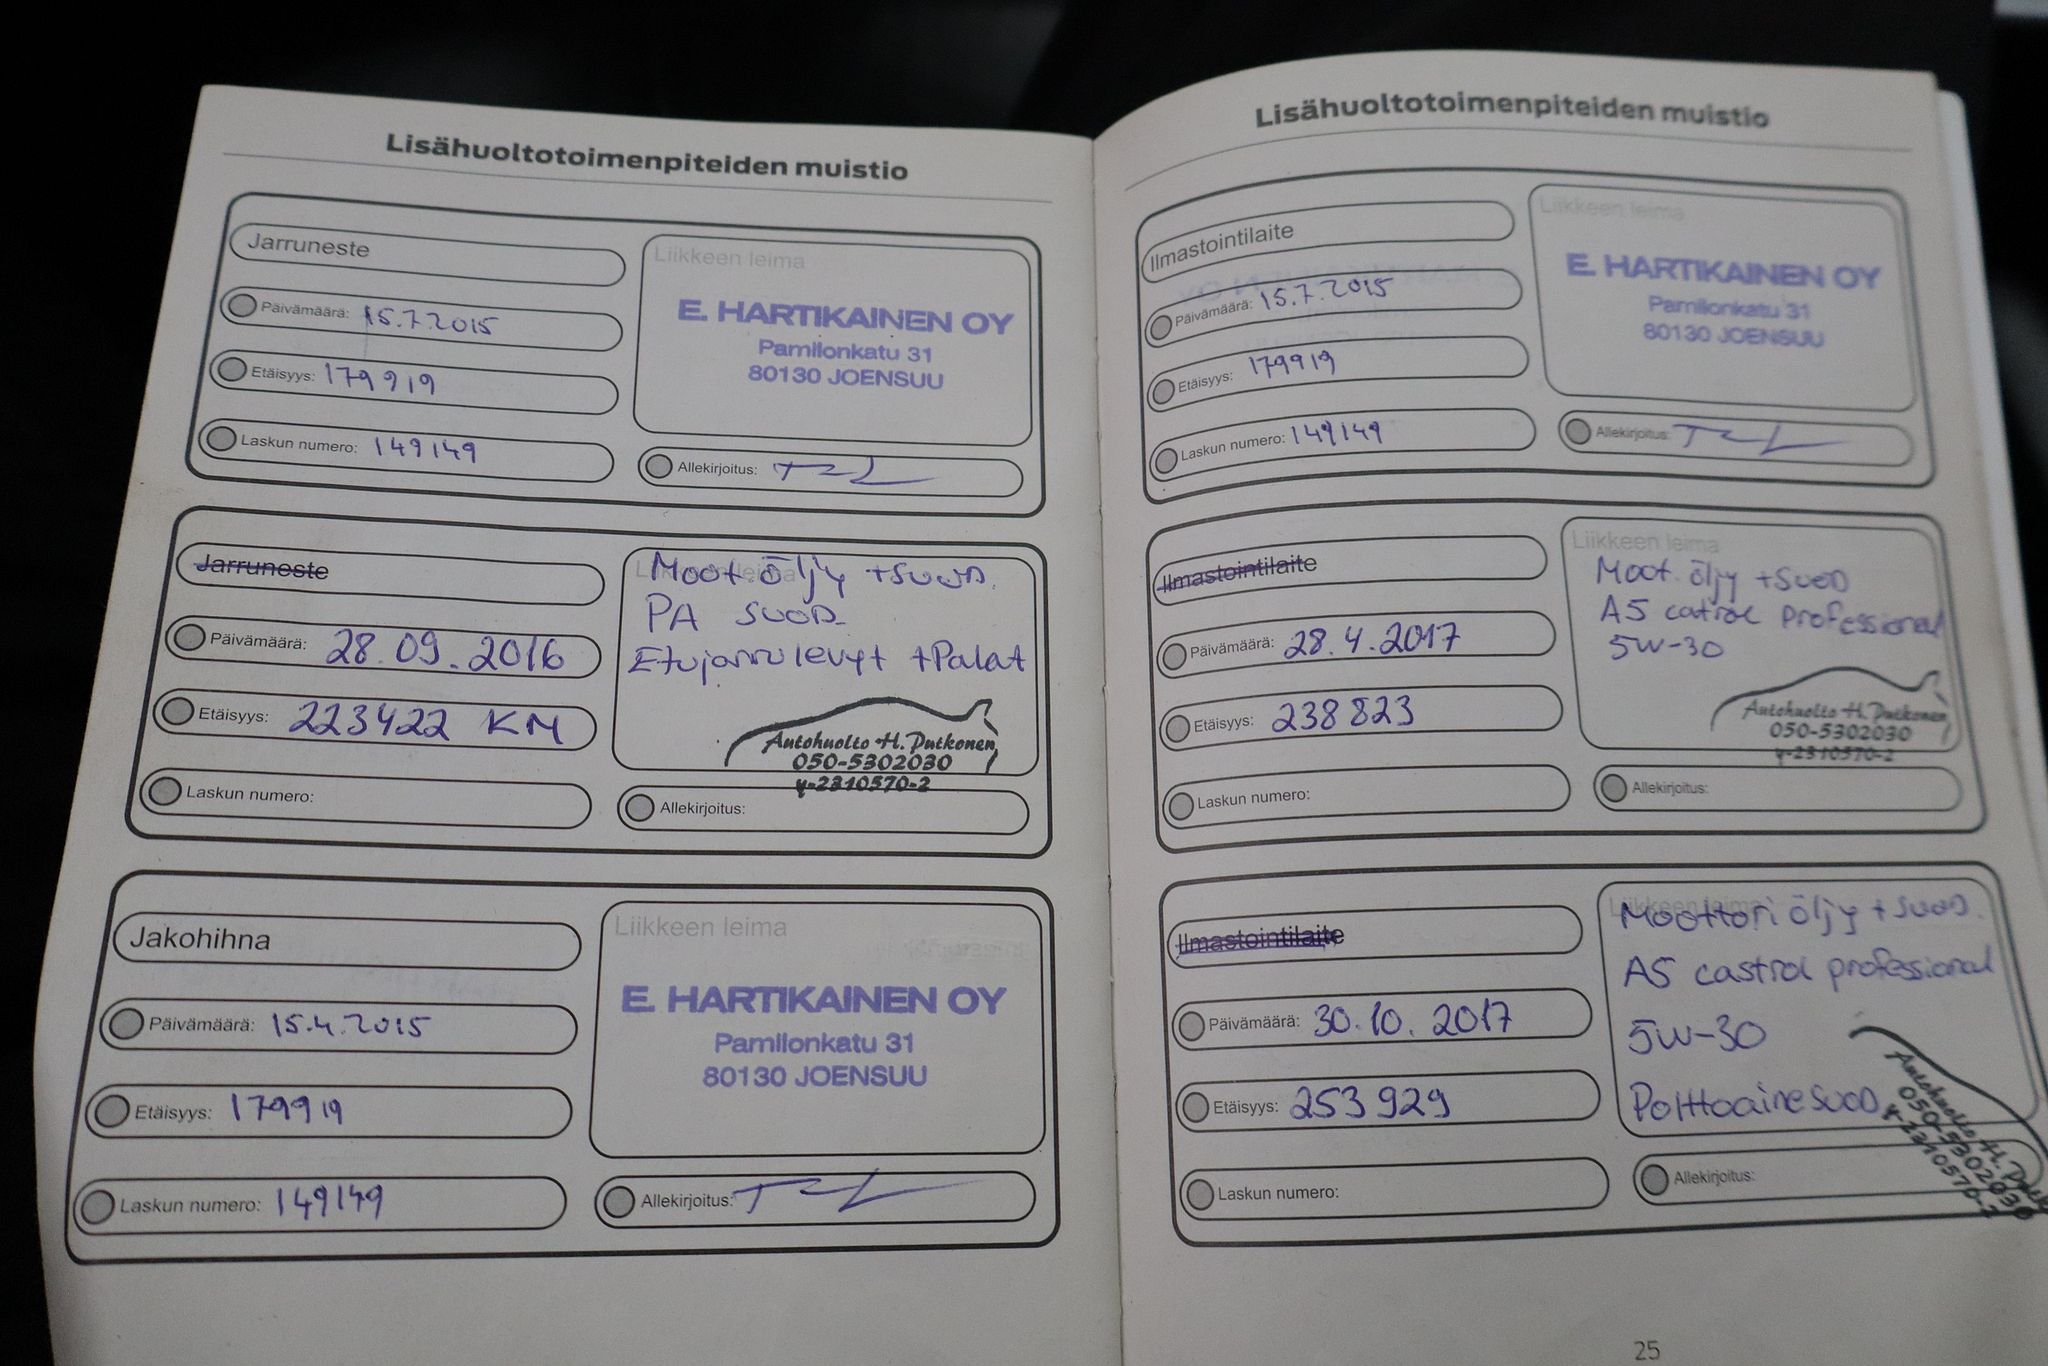 Lisähuoltotoimenpiteiden muistio
Jarruneste
Päivämäärä: 15.7.2015
Etäisyys: 179919
Laskun numero: 149149
Liikkeen leima
E. HARTIKAINEN OY
Pamilonkatu 31
80130 JOENSUU
Allekirjoitus:
Jarruneste
Päivämäärä: 28.09.2016
Etäisyys: 223422 KM
Laskun numero:
Liikkeen leima
Moot.öljy +suod.
PA suod.
Etujarrulevyt +Palat
Autohuolto H. Putkonen
050-5302030
y-2310570-2
Allekirjoitus:
Jakohihna
Päivämäärä: 15.4.2015
Etäisyys: 179919
Laskun numero: 149149
Liikkeen leima
E. HARTIKAINEN OY
Pamilonkatu 31
80130 JOENSUU
Allekirjoitus:
Lisähuoltotoimenpiteiden muistio
Ilmastointilaite
Päivämäärä: 15.7.2015
Etäisyys: 179919
Laskun numero: 149149
Liikkeen leima
E. HARTIKAINEN OY
Pamilonkatu 31
80130 JOENSUU
Allekirjoitus:
Ilmastointilaite
Päivämäärä: 28.4.2017
Etäisyys: 238823
Laskun numero:
Liikkeen leima
Moot. öljy +suod
A5 catrol professional
5W-30
Autohuolto H. Putkonen
050-5302030
y-2310570-2
Allekirjoitus:
Ilmastointilaite
Päivämäärä: 30.10.2017
Etäisyys: 253929
Laskun numero:
Liikkeen leima
Moottori öljy + suod.
A5 castrol professional
5W-30
Polttoaine suod
Autohuolto H.
050-5302030
y-2310570-2
Allekirjoitus:
25